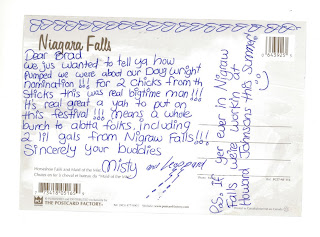 Niagara Falls
Dear Brad
we jus wanted to tell ya how
pumped we were about our Doug Wright
nomination!!! for 2 chicks from th
sticks this was real bigtime man!!!
It's real great a yah to put on
this festival!!! means a whole
bunch to alotta folks, including
2 lil gals from Nigraw Falls!!!
Sincerely your buddies
Misty and Leopard
P.S. If yer ever in Nigraw
Falls we're workin at
Howard Johnsons this Summer!
Horseshoe Falls and Maid of the Mist
THE POSTCARD FACTORY